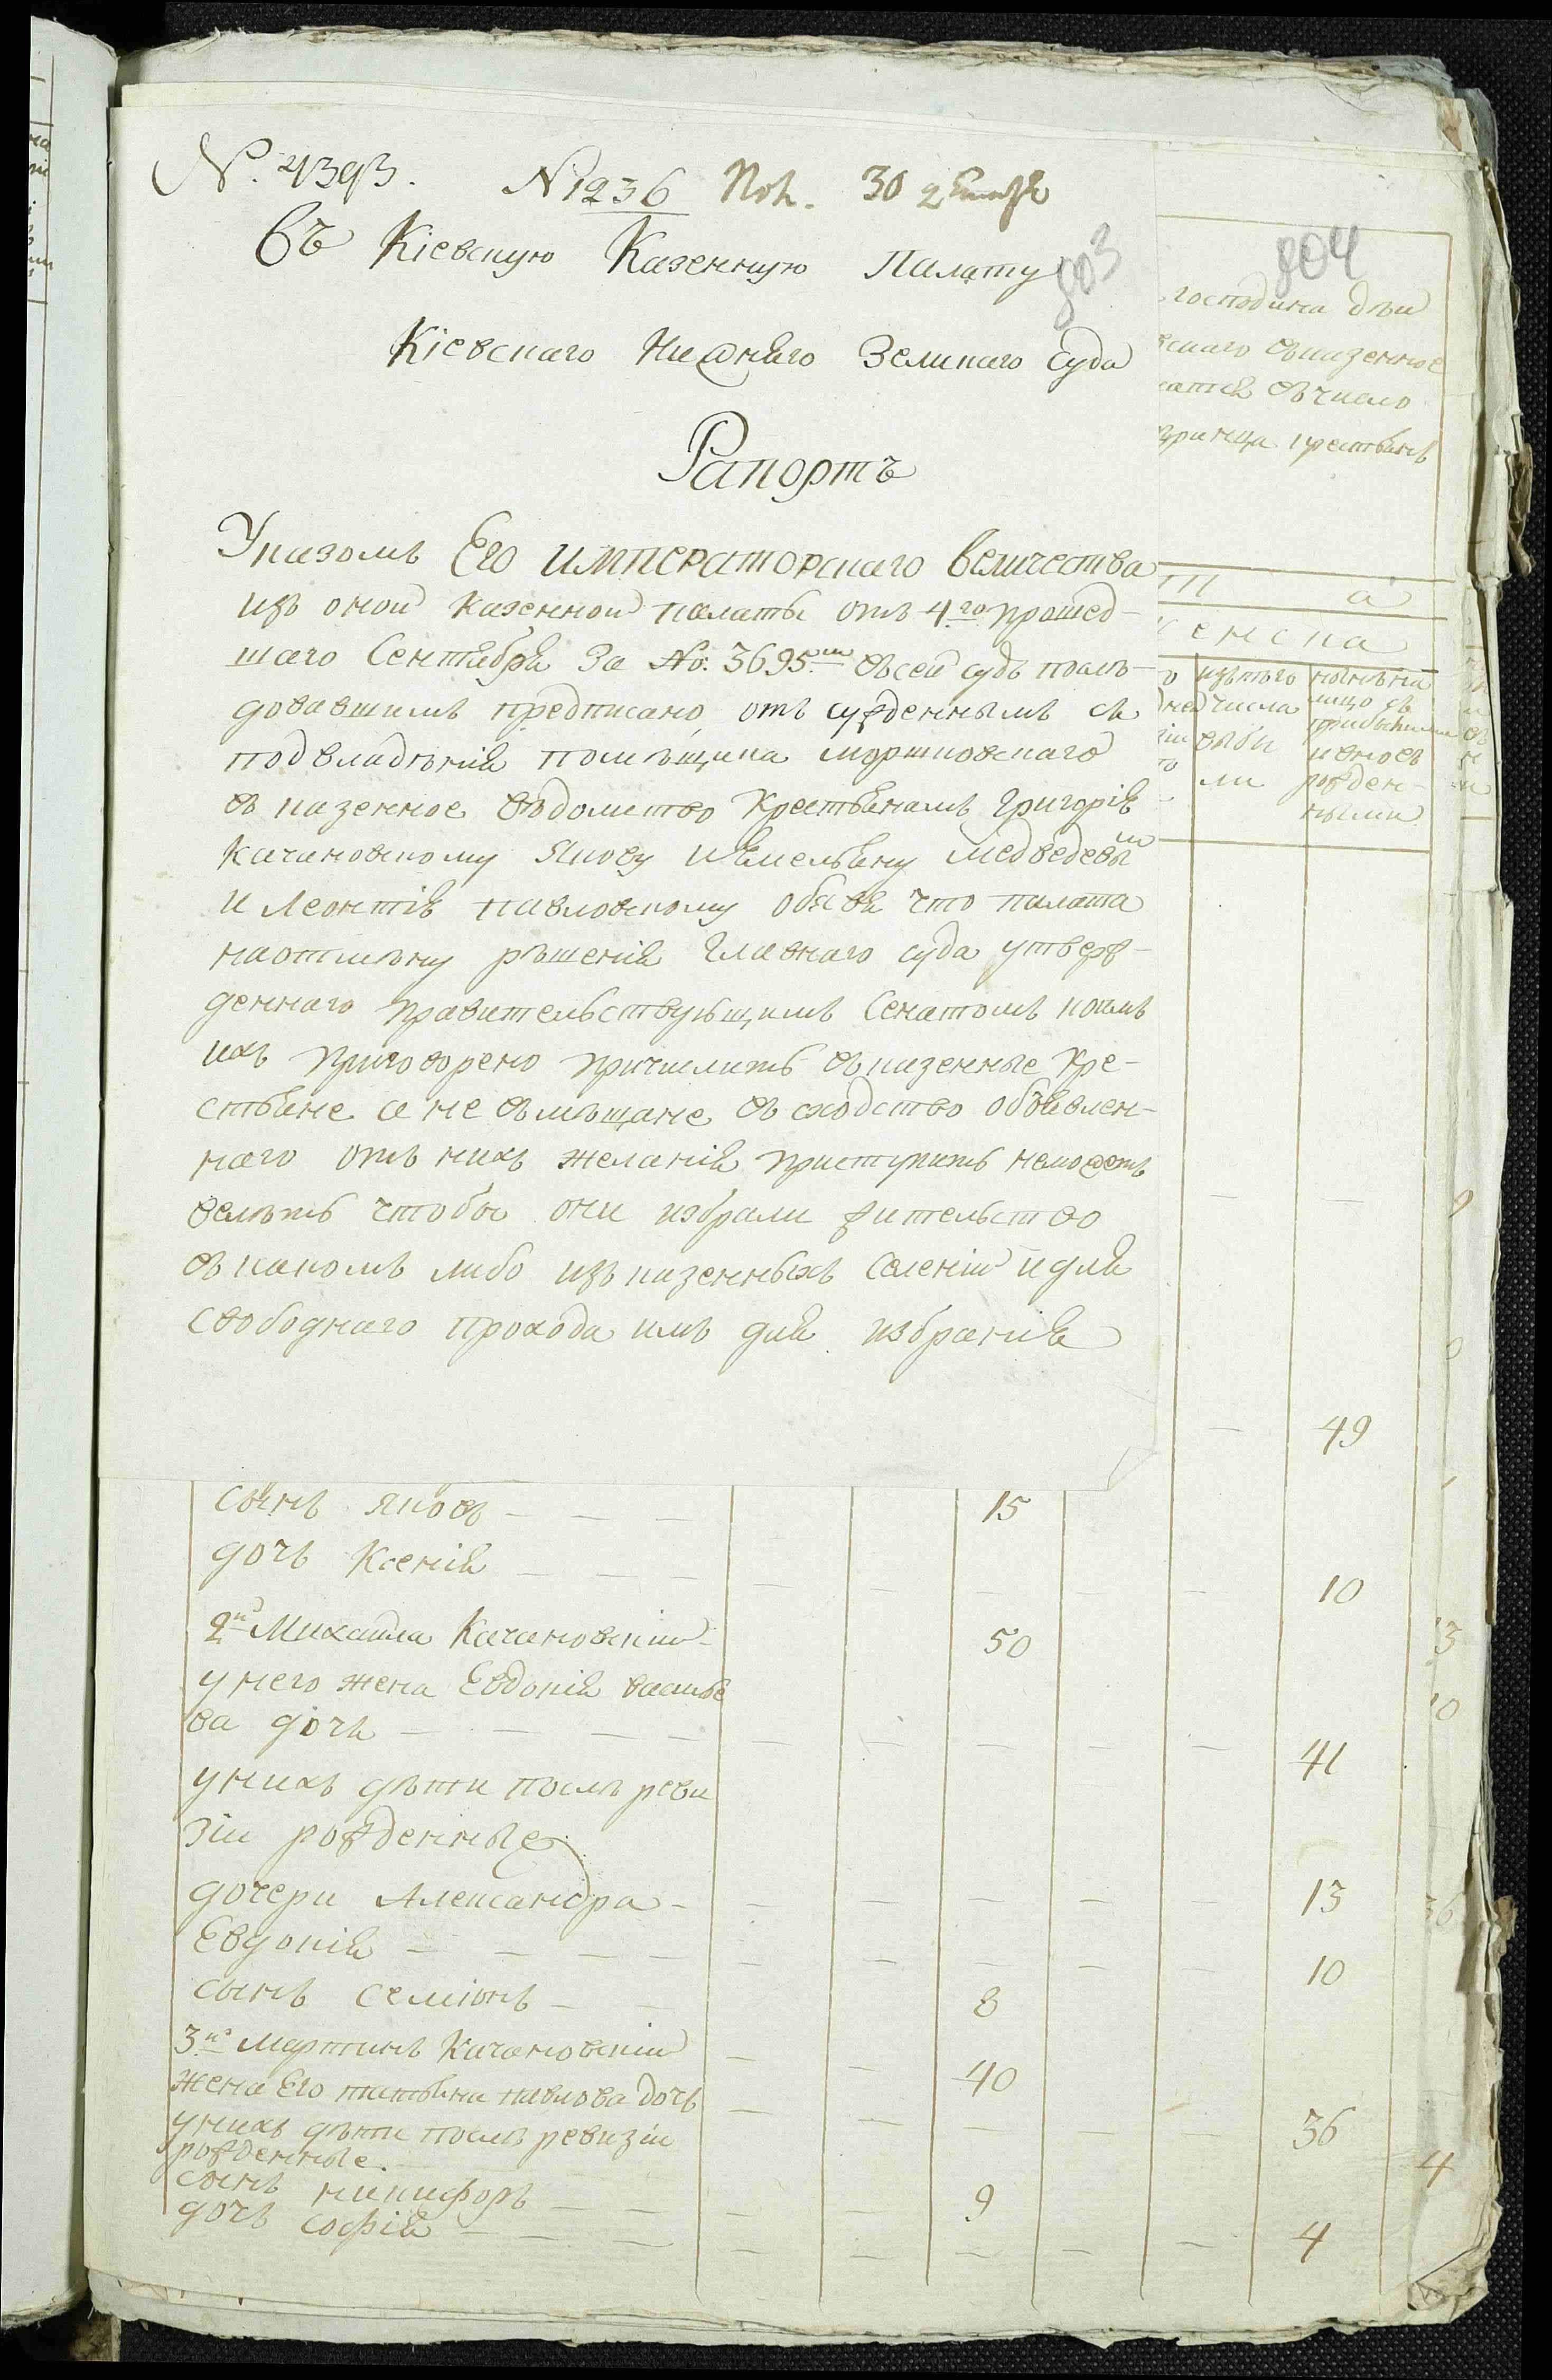 №. 4393. №1236 Пол. 30
803
Въ Кіевскую Казенную Палату
Кіевскаго Нижняго Земскаго Суда
Рапортъ
Указомъ Его императорскаго величества
изъ оной казенной палаты отъ 4го прошед-
шаго Сентября За №: 3695м въ сей судъ послѣ-
довавшимъ предписано отъ сужденнымъ съ
подвладѣнія помѣщика моршковскаго
въ казенное вѣдомство крестьянамъ григорію
качановскому Якову иЕмельяну медведевым
и Леонтію павловскому объявя что палата
наотмѣну рѣшенія главнаго суда утверж-
деннаго правительствующимъ Сенатомъ коимъ
ихъ приговорено причислить въказенные кре-
стьяне а не вмѣщане въ сходство объявлен-
наго отъ нихъ желанія приступить неможетъ
велѣть чтобы они избрали жительство
въ какомъ либо изъ казенныхъ селеній и для
свободнаго прохода имъ для избранія
804
господина дѣи
скаго въказенное
ватся въчисло
крестьянъ
т а
женска
изътого
числа
выбы
ли
нынѣ на
лицо съ
прибылыми
ивновъ
рожден-
ными
49
сынъ яковъ — — — 15
дочь Ксенія — — — 10
2й Михайла Качановскій — 50
у него жена Евдокія василье
ва дочь — — — — 41
унихъ дѣти послѣ реви
зіи рожденные
дочери Александра — 13
Евдокія — — — — 10
сынъ семіонъ — — 8
3й Мартинъ Качановскій 40
жена Его татьяна павлова дочь 36
унихъ дѣти послѣ ревизіи
рожденные.
сынъ никифоръ — — 9
дочь софія — — — 4